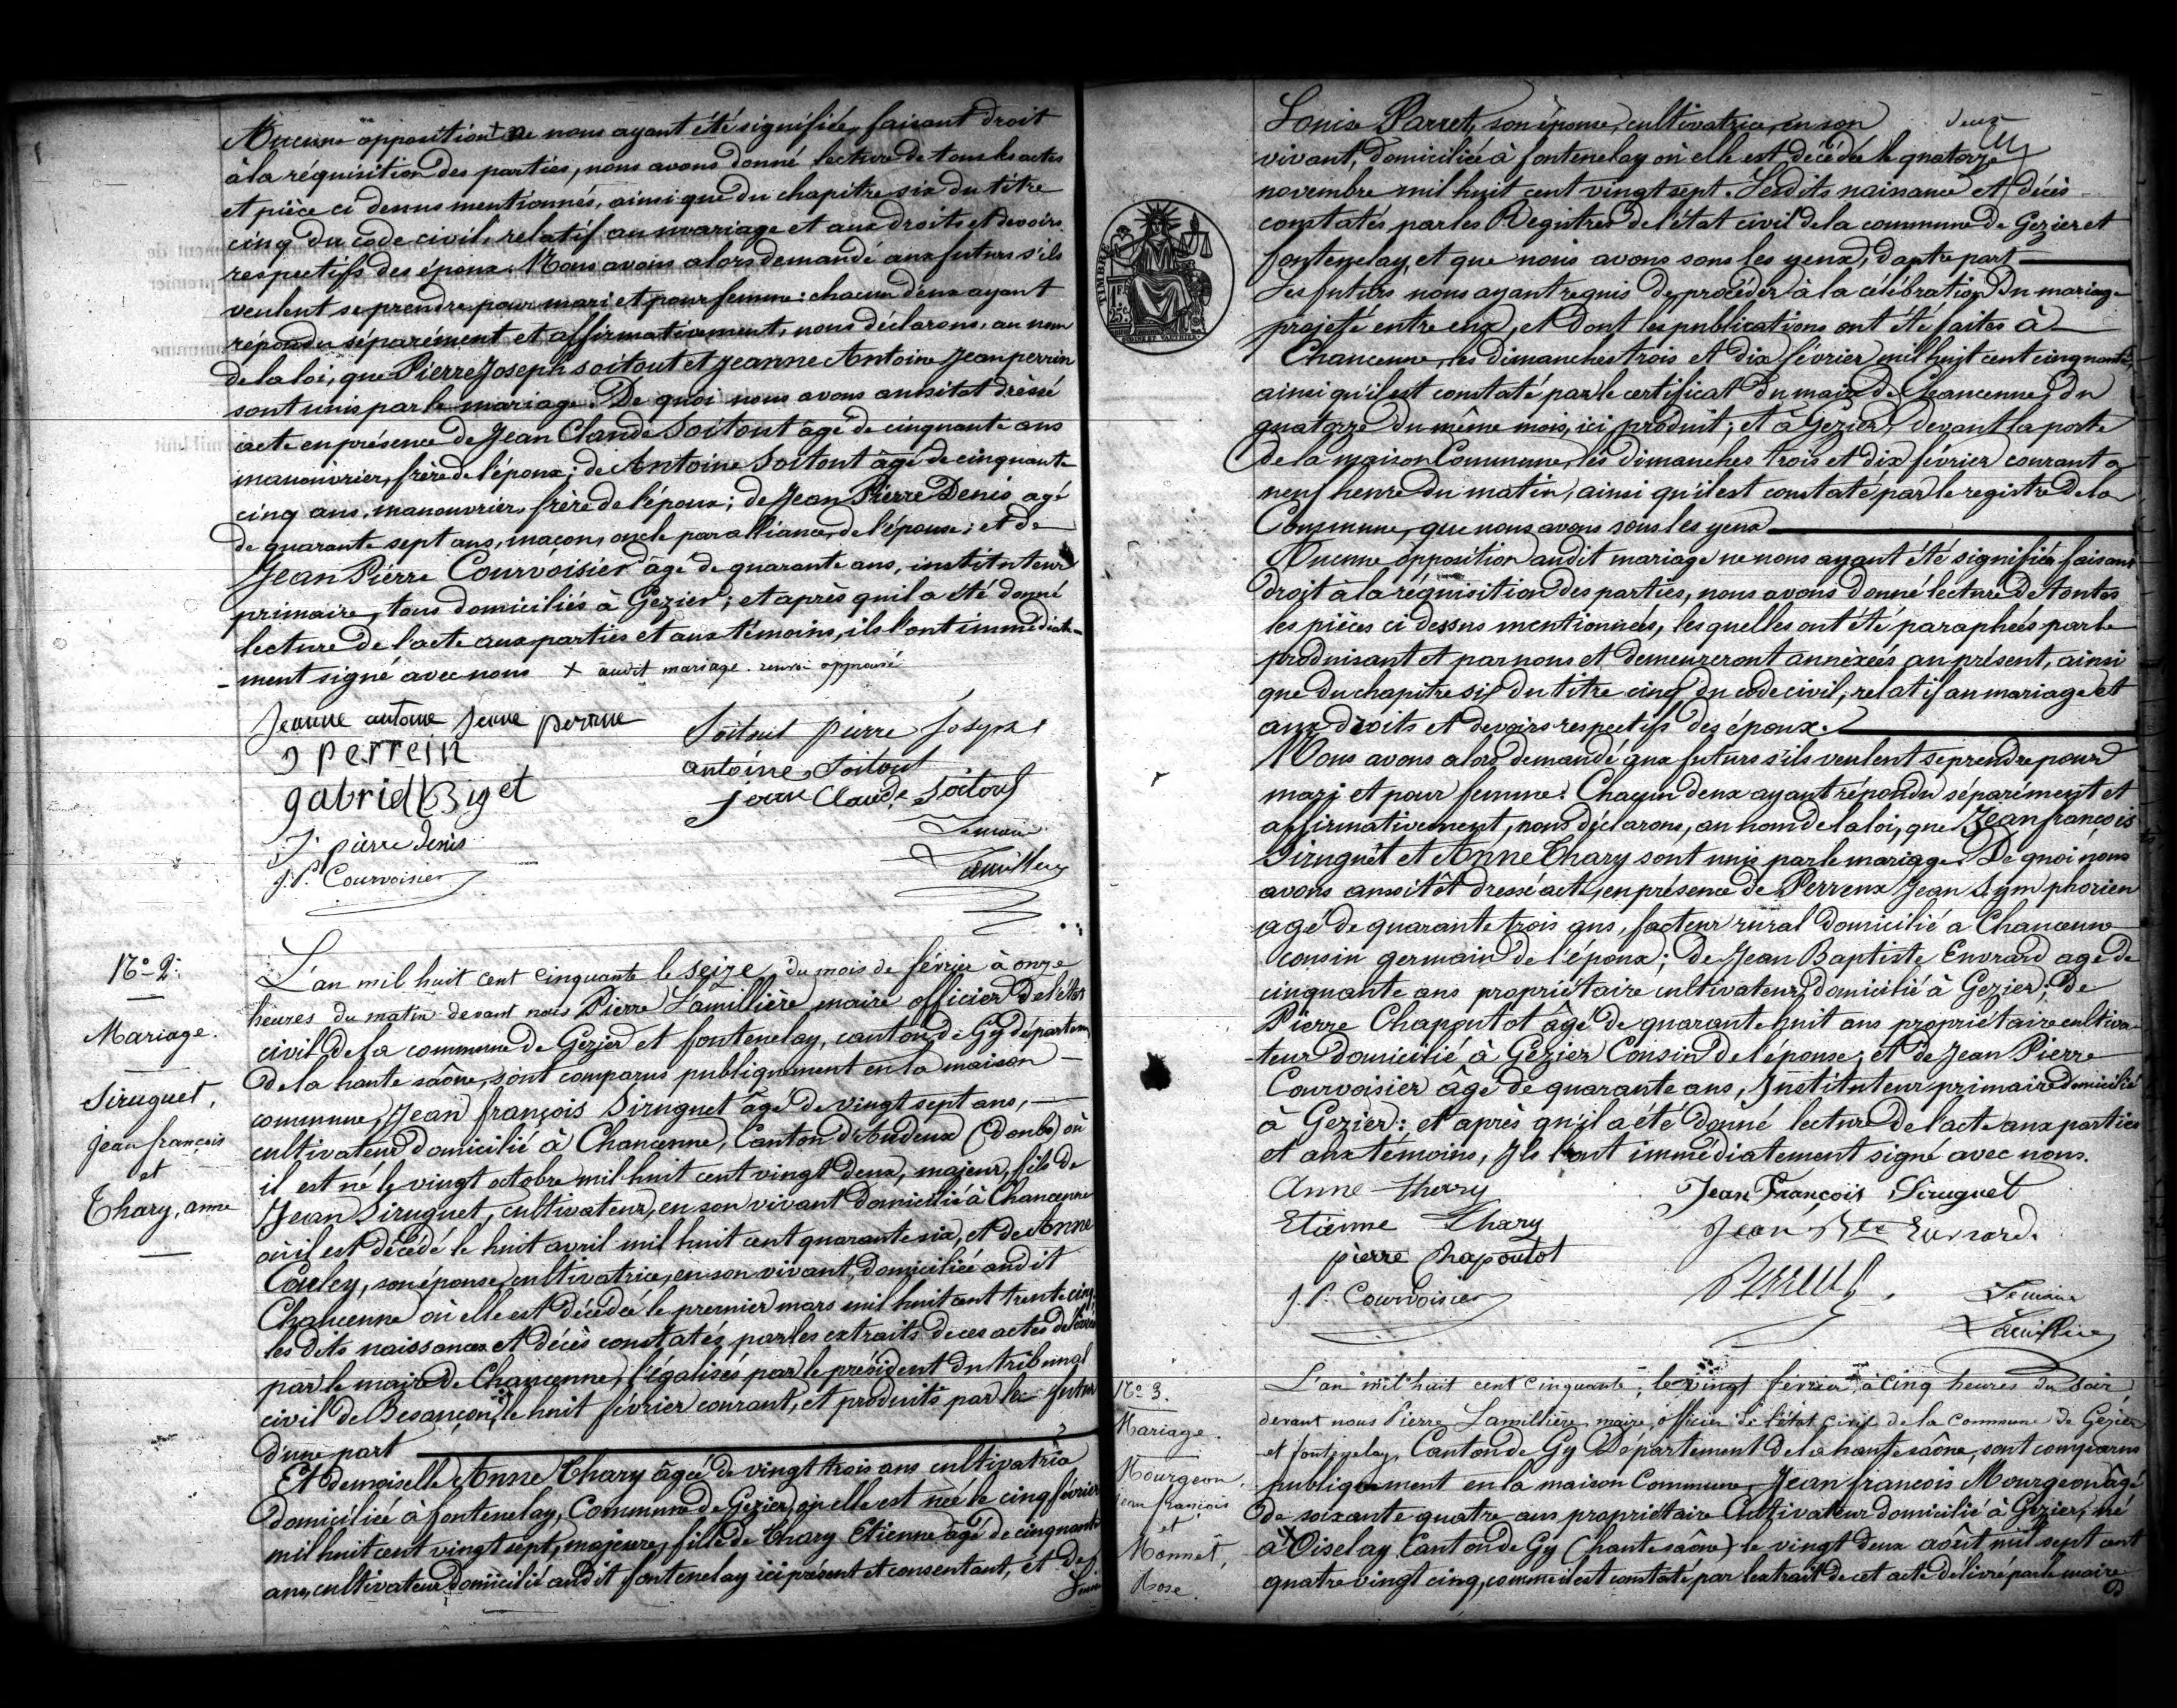 Aucune opposition + ne nous ayant été signifiée, faisant droit
à la réquisition des parties, nous avons donné lecture de tous les actes
et pièce ci dessus mentionnés, ainsi que du chapitre six du titre
cinq du code civil, relatif au mariage et aux droits et devoirs
respectifs des époux. Nous avons alors demandé aux futurs s'ils
veulent se prendre pour mari et pour femme: chacun d'eux ayant
répondu séparément et affirmativement, nous déclarons, au nom
de la loi, que Pierre Joseph Soitout et Jeanne Antoine Jeanperrin
sont unis par le mariage. De quoi nous avons aussitot dressé
acte en présence de Jean Claude Soitout âgé de cinquante ans
manouvrier, frère de l'époux; de Antoine Soitout âgé de cinquante
cinq ans, manouvrier, frère de l'époux; de Jean Pierre Denis agé
de quarante sept ans, maçon, oncle par alliance, de l'épouse; et de
Jean Pierre Courvoisier âgé de quarante ans, instituteur
primaire, tous domiciliés à Gezier; et après qu'il a été donné
lecture de l'acte aux parties et aux témoins, ils l'ont immédiate-
-ment signé avec nous + audit mariage. renvoi approuvé
Jeanne antoine Jenne perrine
Soitout pierre Joseph
J perrein
antoine Soitout
gabriel Biget
jean Claude Soitout
J. pierre denis
Le maire
J. P. Courvoisier
Lamillière
N°. 2.
Mariage.
Siruguet,
jean françois
et
Thary, anne
L'an mil huit cent cinquante le seize du mois de février à onze
heures du matin devant nous Pierre Lamillière maire officier de l'état
civil de la commune de Gezier et fontenelay, canton de Gy départem
de la haute saône, sont comparus publiquement en la maison
commune, Jean françois Siruguet âgé de vingt sept ans,
cultivateur domicilié à Chancenne, Canton d'Audeux (Doubs) où
il est né le vingt octobre mil huit cent vingt deux, majeur, fils de
Jean Siruguet, cultivateur, en son vivant domicilié à Chancenne
où il est décédé le huit avril mil huit cent quarante six, et de Anne
Cauley, son épouse, cultivatrice, en son vivant, domiciliée audit
Chancenne où elle est décédée le premier mars mil huit cent trente cinq,
les dits naissances et décès constatés par les extraits de ces actes délivrés
par le maire de Chancenne, légalisés par le président du tribunal
civil de Besançon, le huit février courant, et produits par le futur
d'une part
Et demoiselle Anne Thary âgée de vingt trois ans cultivatrice
domiciliée à fontenelay, Commune de Gezier, où elle est née le cinq février
mil huit cent vingt sept, majeure, fille de Thary Etienne âgé de cinquante
ans, cultivateur domicilié audit fontenelay ici présent et consentant, et de
deux
Louise Parret, son épouse, cultivatrice, en son
vivant, domiciliée à fontenelay où elle est décédée le quatorze
novembre mil huit cent vingt sept. Lesdits naissance et décès
constatés par les Registres de l'état civil de la commune de Gezier et
fontenelay, et que nous avons sous les yeux, d'autre part
Les futurs nous ayant requis de procéder à la célébration du mariage
projeté entre eux, et dont les publications ont été faites à
Chancenne, les dimanches trois et dix février mil huit cent cinquante,
ainsi qu'il est constaté par le certificat du maire de Chancenne, du
quatorze du même mois, ici produit; et à Gezier, devant la porte
de la maison Commune, les dimanches trois et dix février courant a
neuf heure du matin, ainsi qu'il est constaté par le registre de la
Commune, que nous avons sous les yeux
Aucune opposition audit mariage ne nous ayant été signifiée faisant
droit à la réquisition des parties, nous avons donné lecture de toutes
les pièces ci dessus mentionnées, lesquelles ont été paraphées par le
produisant et par nous et demeureront annexées au présent, ainsi
que du chapitre six du titre cinq du code civil, relatif au mariage et
aux droits et devoirs respectifs des époux.
Nous avons alors demandé aux futurs s'ils veulent se prendre pour
mari et pour femme. Chacun deux ayant répondu séparément et
affirmativement, nous déclarons, au nom de la loi, que Jean françois
Siruguet et Anne Thary sont unis par le mariage. De quoi nous
avons aussitôt dressé acte, en présence de Perreux Jean Symphorien
agé de quarante trois ans, facteur rural domicilié a Chancenne
cousin germain de l'époux; de Jean Baptiste Euvrard agé de
cinquante ans propriétaire cultivateur domicilié à Gezier; de
Pierre Chapoutot âgé de quarante huit ans propriétaire cultiva-
-teur domicilié à Gezier Cousin de l'épouse; et de Jean Pierre
Courvoisier âgé de quarante ans, Instituteur primaire domicilié
à Gezier: et après qu'il a été donné lecture de l'acte aux parties
et aux témoins, Ils l'ont immédiatement signé avec nous.
Anne Therry
Jean François Siruguet
Etienne Thary
Jean Bte Euvrard.
pierre Chapoutot
Perreux
J. P. Courvoisier
Le maire
Lamillière
N°. 3.
Mariage.
Mourgeon,
jean françois
et
Monnet,
Rose.
L'an mil huit cent cinquante, le vingt février à cinq heures du soir
devant nous Pierre Lamillière maire, officier de l'état civil de la Commune de Gezier
et fontenelay, Canton de Gy Département de la haute saône, sont comparus
publiquement en la maison Commune, Jean francois Mourgeon âgé
de soixante quatre ans propriétaire Cultivateur domicilié à Gezier, né
à Oiselay Canton de Gy (haute saône) le vingt deux août mil sept cent
quatre vingt cinq, comme il est constaté par l'extrait de cet acte délivré par le maire
TIMBRE
1F
25C